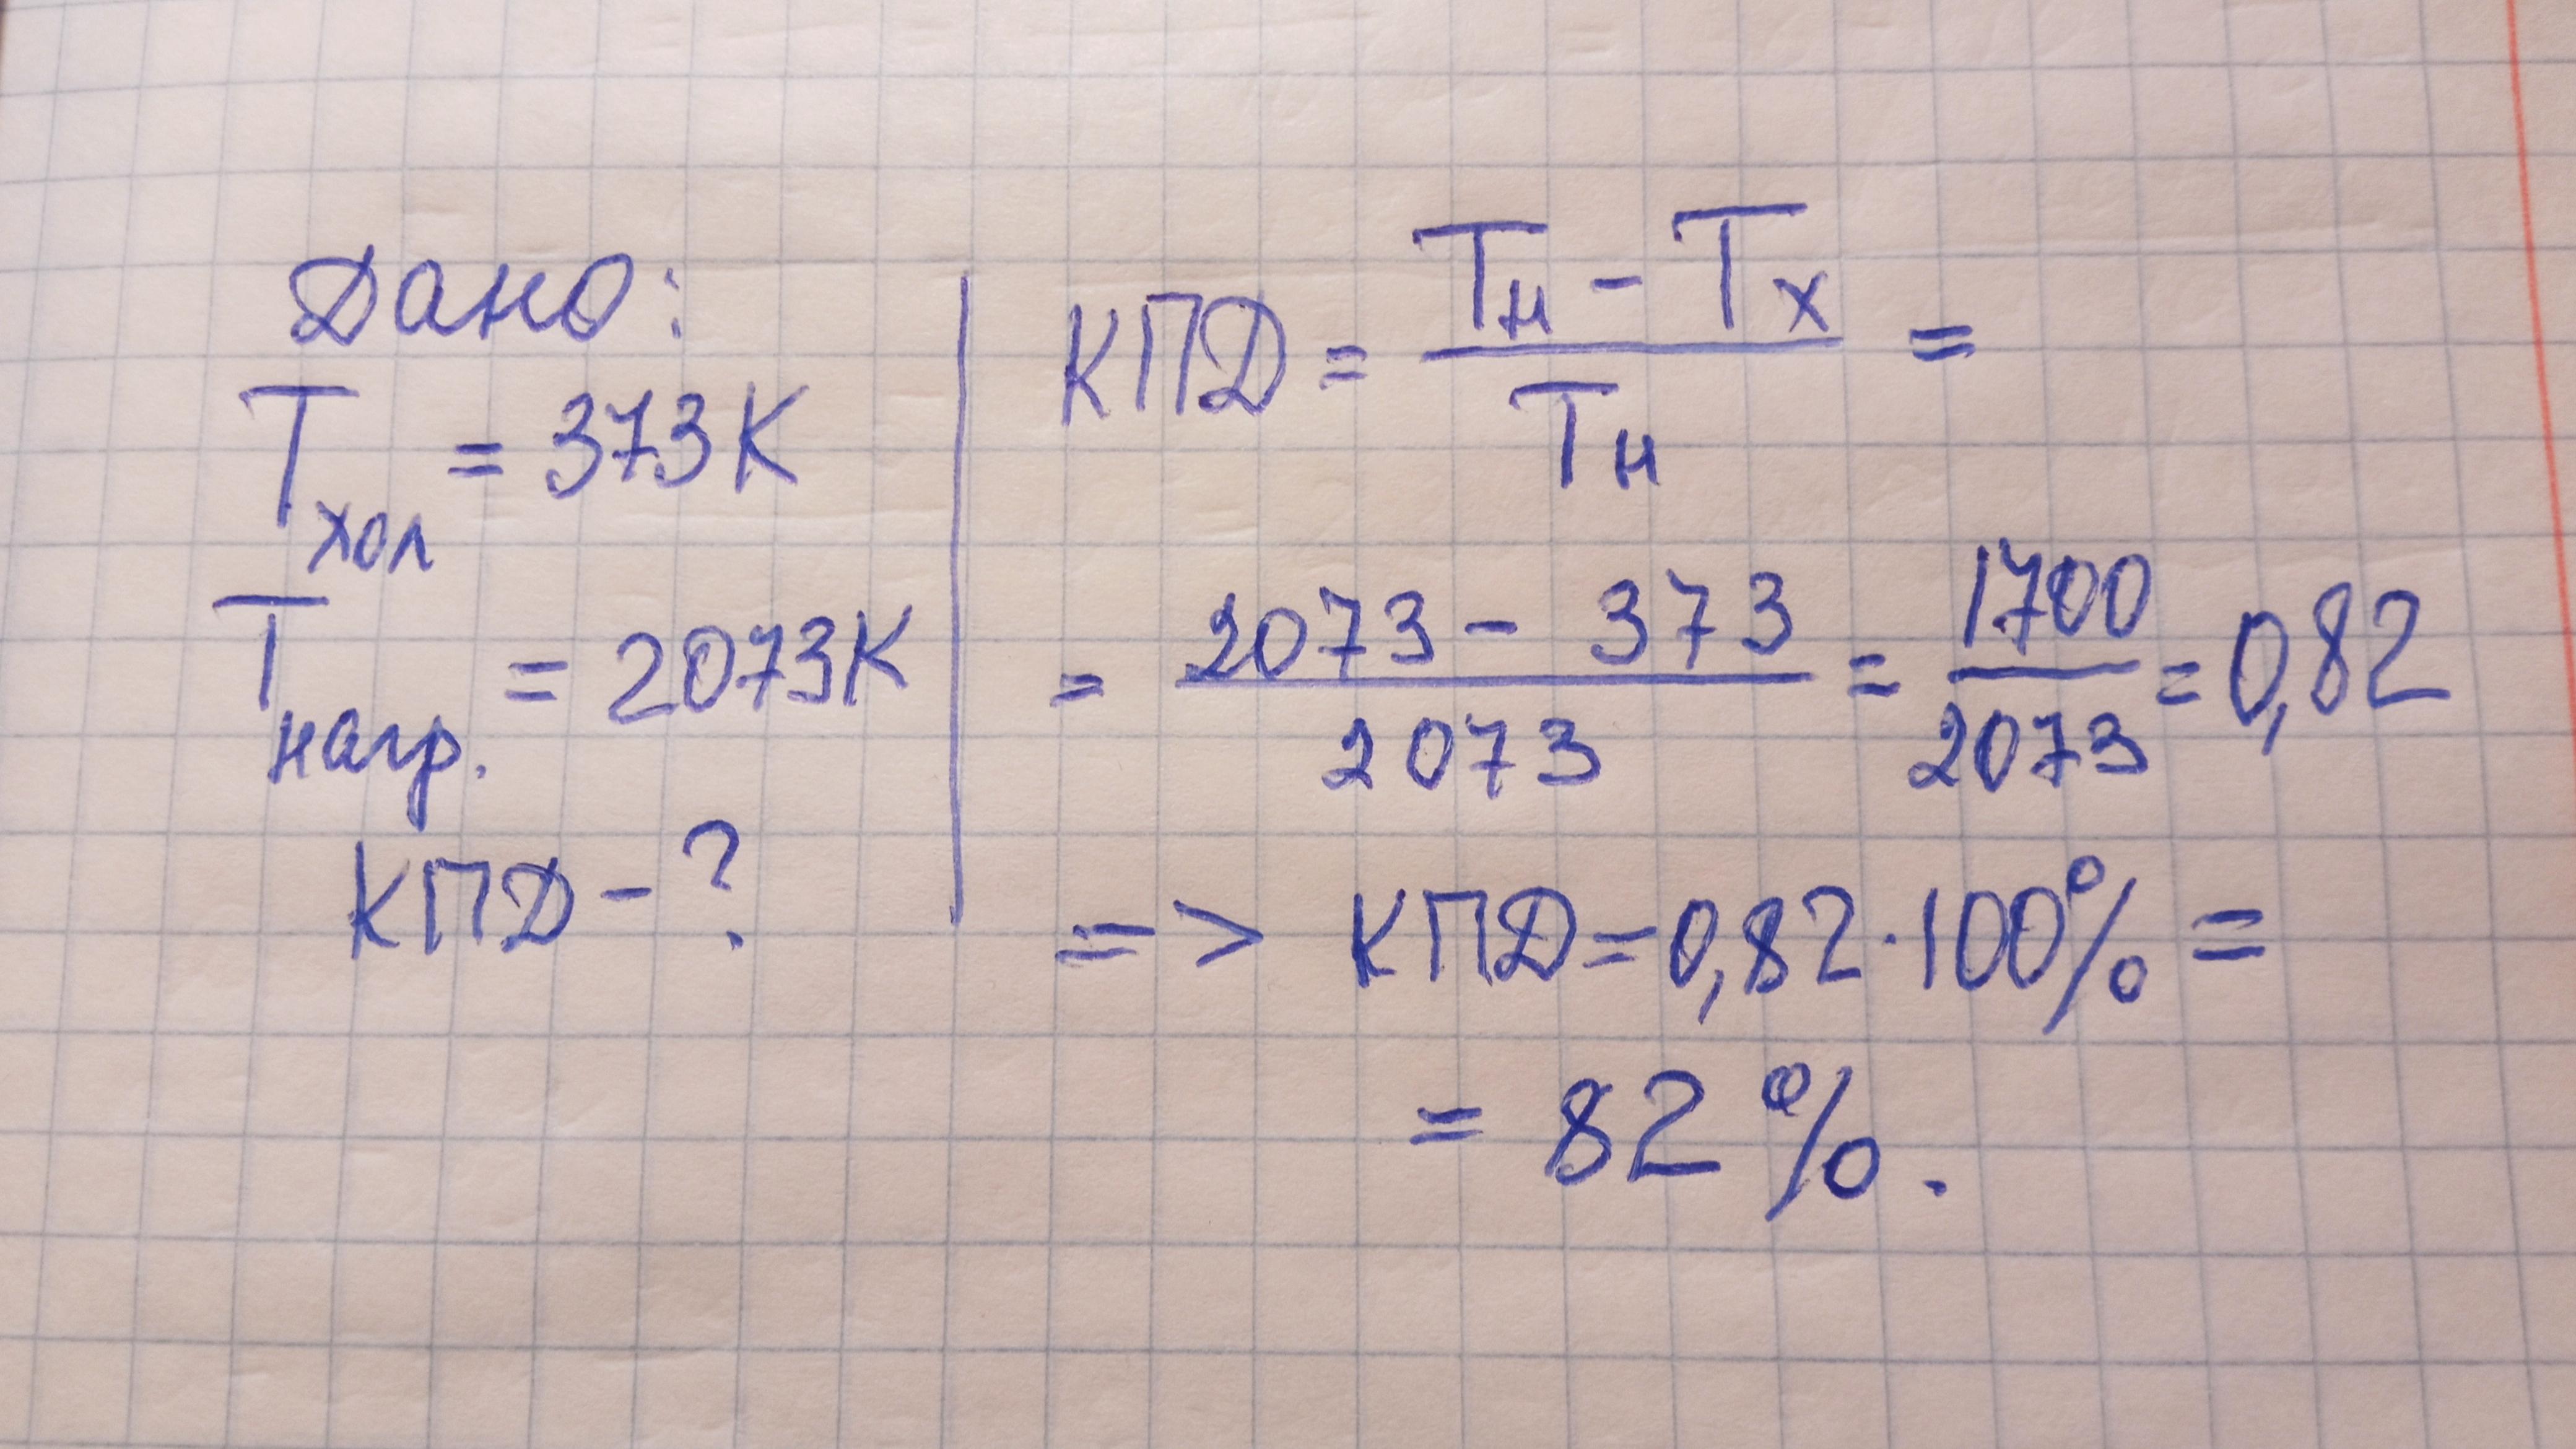 Дано:
Tхол = 373К
Tнагр. = 2073К
КПД - ?
КПД = (Tн - Tх) / Tн =
= (2073 - 373) / 2073 = 1700 / 2073 = 0,82
=> КПД = 0,82 · 100% =
= 82 %.